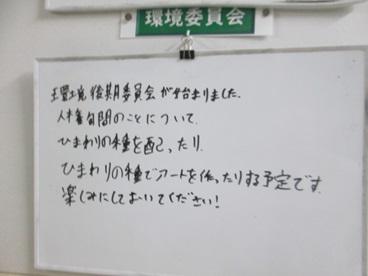 環境委員会
環境後期委員会が始まりました。
人権旬間のことについて、
ひまわりの種を配ったり、
ひまわりの種でアートを作ったりする予定です。
楽しみにしておいてください!